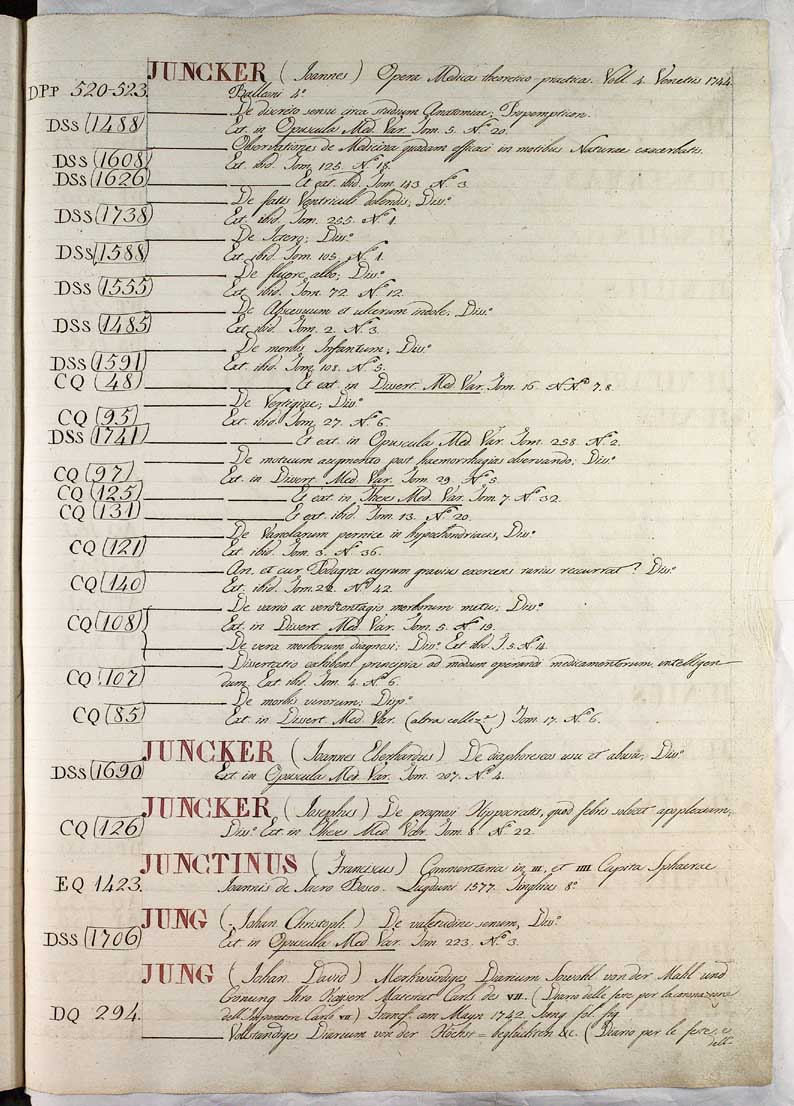 JUNCKER (Joannes) Opera Medica theoretico-practica. Voll. 4. Venetiis 1744.
DPP 520-523. Ballami 4.°
De discreto sensu circa studium Anatomiae; Propempticon.
DSS (1488) Ext. in Opuscula Med. Var. Tom. 5. N.° 20.
Observationes de Medicina quadam efficaci in motibus Naturae exacerbatis.
DSS (1608) Ext. ibid. Tom. 125. N.° 18.
DSS (1626) Et ext. ibid. Tom. 143. N.° 3.
De fatis Ventriculi dolendis; Diss.°
DSS (1738) Ext. ibid. Tom. 255. N.° 1.
De Ictero; Diss.°
DSS (1588) Ext. ibid. Tom. 105. N.° 1.
De fluore albo; Diss.°
DSS (1555) Ext. ibid. Tom. 72. N.° 12.
De Abscessuum et ulcerum indole; Diss.°
DSS (1485) Ext. ibid. Tom. 2. N.° 3.
De morbis Infantum; Diss.°
DSS (1591) Ext. ibid. Tom. 108. N.° 5.
CQ (48) Et ext. in Dissert. Med. Var. Tom. 16. N.N.° 7.8.
De Vertigine; Diss.°
CQ (95) Ext. ibid. Tom. 27. N.° 6.
DSS (1741) Et ext. in Opuscula Med. Var. Tom. 258. N.° 2.
De motuum augmento post haemorrhagias observando; Diss.°
CQ (97) Ext. in Dissert. Med. Var. Tom. 29. N.° 5.
CQ (125) Et ext. in Theses Med. Var. Tom. 7. N.° 32.
CQ (131) Et ext. ibid. Tom. 13. N.° 20.
De Variolarum pernicie in hypochondriacis; Diss.°
CQ (121) Ext. ibid. Tom. 3. N.° 36.
An, et cur Podagra aegrum gravius exercens rarius recurrat? Diss.°
CQ (140) Ext. ibid. Tom. 22. N.° 42.
De vario ac vero contagio morborum metu; Diss.°
CQ (108) Ext. in Dissert. Med. Var. Tom. 5. N.° 19.
De vera morborum diagnosi; Diss.° Ext. ibid. T. 5. N.° 4.
Dissertatio exhibens principia ad modum operandi medicamentorum intelligen-
CQ (107) dum. Ext. ibid. Tom. 4. N.° 6.
De morbis virorum; Disp.°
CQ (85) Ext. in Dissert. Med. Var. (altra collez.°) Tom. 17. N.° 6.
JUNCKER (Joannes Eberhardus) De diaphoreseos usu et abusu; Diss.°
DSS (1690) Ext. in Opuscula Med. Var. Tom. 207. N.° 4.
JUNCKER (Josephus) De prognosi Hypocratis, quod febris solvat apoplexiam;
CQ (126) Diss.° Ext. in Theses Med. Var. Tom. 8. N.° 22.
JUNCTINUS (Franciscus) Commentaria in III. et IIII. Capita Sphaerae
EQ 1423. Joannis de Sacro Bosco. Lugduni 1577. Tinghius 8.°
JUNG (Johan. Christoph.) De valetudine senum, Diss.°
DSS (1706) Ext. in Opuscula Med. Var. Tom. 223. N.° 3.
JUNG (Johan. David) Merkwürdiges Diarium Sowohl von der Mahl und
Crönung Ihro Kayserl. Maiestat Carls des VII. (Diario delle feste per la coronazione
DQ 294. dell'Imperatore Carlo VII.) Francf. am Mayn 1742. Jung fol. fig.
Vollständiges Diarium von der Höchst=beglückten &c. (Diario per le feste, e
dell-